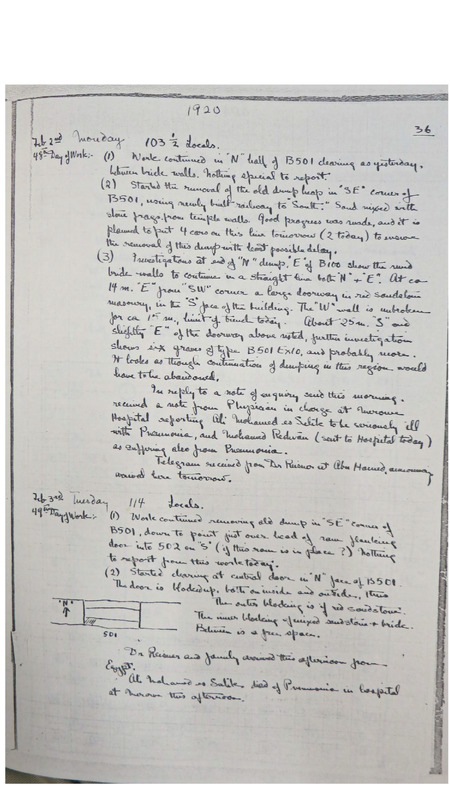 1920
36
Feb 2nd Monday 103 ½ Locals.
48th Day of Work:- (1) Work continued in "N" half of B501 clearing as yesterday,
between brick walls. Nothing special to report.
(2) Started the removal of the old dump heap in "SE" corner of
B501, using newly built railway to "South." Sand mixed with
stone frags from temple walls. Good progress was made, and it is
planned to put 4 cars on this line tomorrow (2 today) to ensure
the removal of this dump with least possible delay.
(3) Investigations at end of "N" dump, "E" of B100 show the mud
brick walls to continue in a straight line both "N" + "E". At ca
14 m. "E" from "SW" corner a large doorway in red sandstone
masonry, in the "S" face of the building. The "W" wall is unbroken
for ca 15 m., limit of trench today. About 25 m. "S" and
slightly "E" of the doorway above noted, further investigation
shows six graves of type B501 Ex10, and probably more.
It looks as though continuation of dumping in this region would
have to be abandoned.
In reply to a note of enquiry send this morning,
received a note from Physician in charge at Merowe
Hospital reporting Ali Mohamed es Salik to be seriously ill
with Pneumonia, and Mohamed Redwan (sent to Hospital today)
as suffering also from Pneumonia.
Telegram received from Dr Reisner at Abu Hamed, announcing
arrival here tomorrow.
Feb 3rd Tuesday 114 Locals.
49th Day of Work:- (1) Work continued removing old dump in "SE" corner of
B501, down to point just over head of ram flanking
door into 502 on "S" (if this ram is in place?) Nothing
to report from this work today.
(2) Started clearing at central door in "N" face of B501.
The door is blocked up, both on inside and outside, thus
"N"
The outer blocking is of red sandstone.
The inner blocking of mixed sandstone + brick.
Between is a free space.
501
Dr Reisner and family arrived this afternoon from
Egypt.
Ali Mohamed es Salik died of Pneumonia in hospital
at Merowe this afternoon.